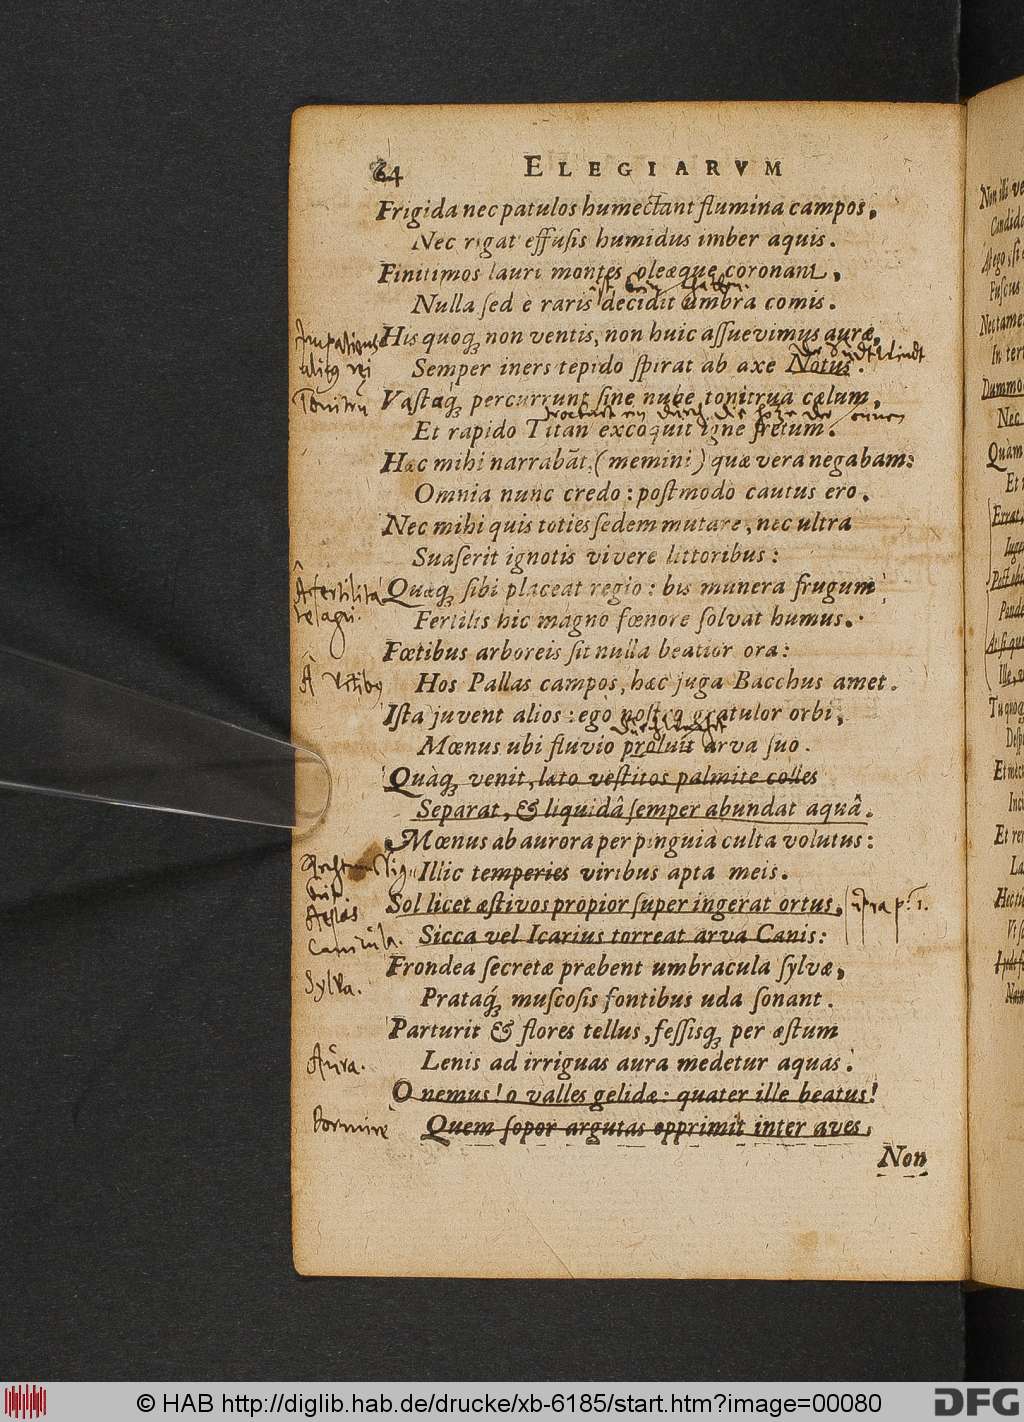 64 ELEGIARVM
Frigida nec patulos humectant flumina campos,
Nec rigat effusis humidus imber aquis.
Finitimos lauri montes oleæque coronant,
Nulla sed e raris decidit umbra comis.
His quoq; non ventis, non huic assuevimus auræ,
Semper iners tepido spirat ab axe Notus.
Südtwindt
Tonitru
Vastaq́; percurrunt sine nube tonitrua cælum,
Et rapido Titan excoquit igne fretum.
Hæc mihi narrabãt, (memini) quæ vera negabam:
Omnia nunc credo: postmodo cautus ero.
Nec mihi quis toties sedem mutare, nec ultra
Suaserit ignotis vivere littoribus:
Â fertilita
te agri.
Quæq; sibi placeat regio: bis munera frugum
Fertilis hic magno fœnore solvat humus.
Fœtibus arboreis sit nulla beatior ora:
Â vitibus
Hos Pallas campos, hæc juga Bacchus amet.
Ista juvent alios: ego nostro gratulor orbi,
Mœnus ubi fluvio proluit arva suo.
Quàq; venit, lato vestitos palmite colles
Separat, & liquidâ semper abundat aquâ.
Mœnus ab aurora per pinguia culta volutus:
Illic temperies viribus apta meis.
Sol licet æstivos propior super ingerat ortus,
Æstas
Canicula.
Sicca vel Icarius torreat arva Canis:
Frondea secretæ præbent umbracula sylvæ,
Sylva.
Prataq́; muscosis fontibus uda sonant.
Parturit & flores tellus, fessisq; per æstum
Aura.
Lenis ad irriguas aura medetur aquas.
O nemus! o valles gelidæ: quater ille beatus!
Dormire
Quem sopor argutas opprimit inter aves,
Non
© HAB http://diglib.hab.de/drucke/xb-6185/start.htm?image=00080
DFG